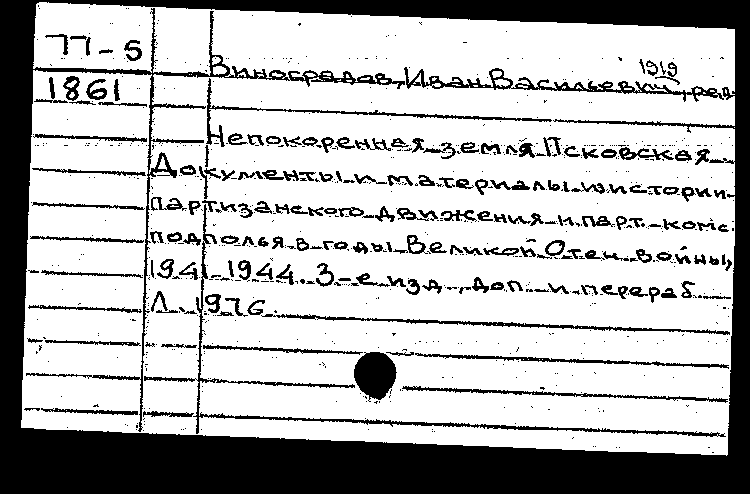 77-5
1861
1919
Виноградов, Иван Васильевич, ред.
Непокоренная земля Псковская.
Документы и материалы из истории
партизанского движения и парт.-комс.
подполья в годы Великой Отеч. войны,
1941-1944. 3-е изд., доп. и перераб.
Л. 1976.